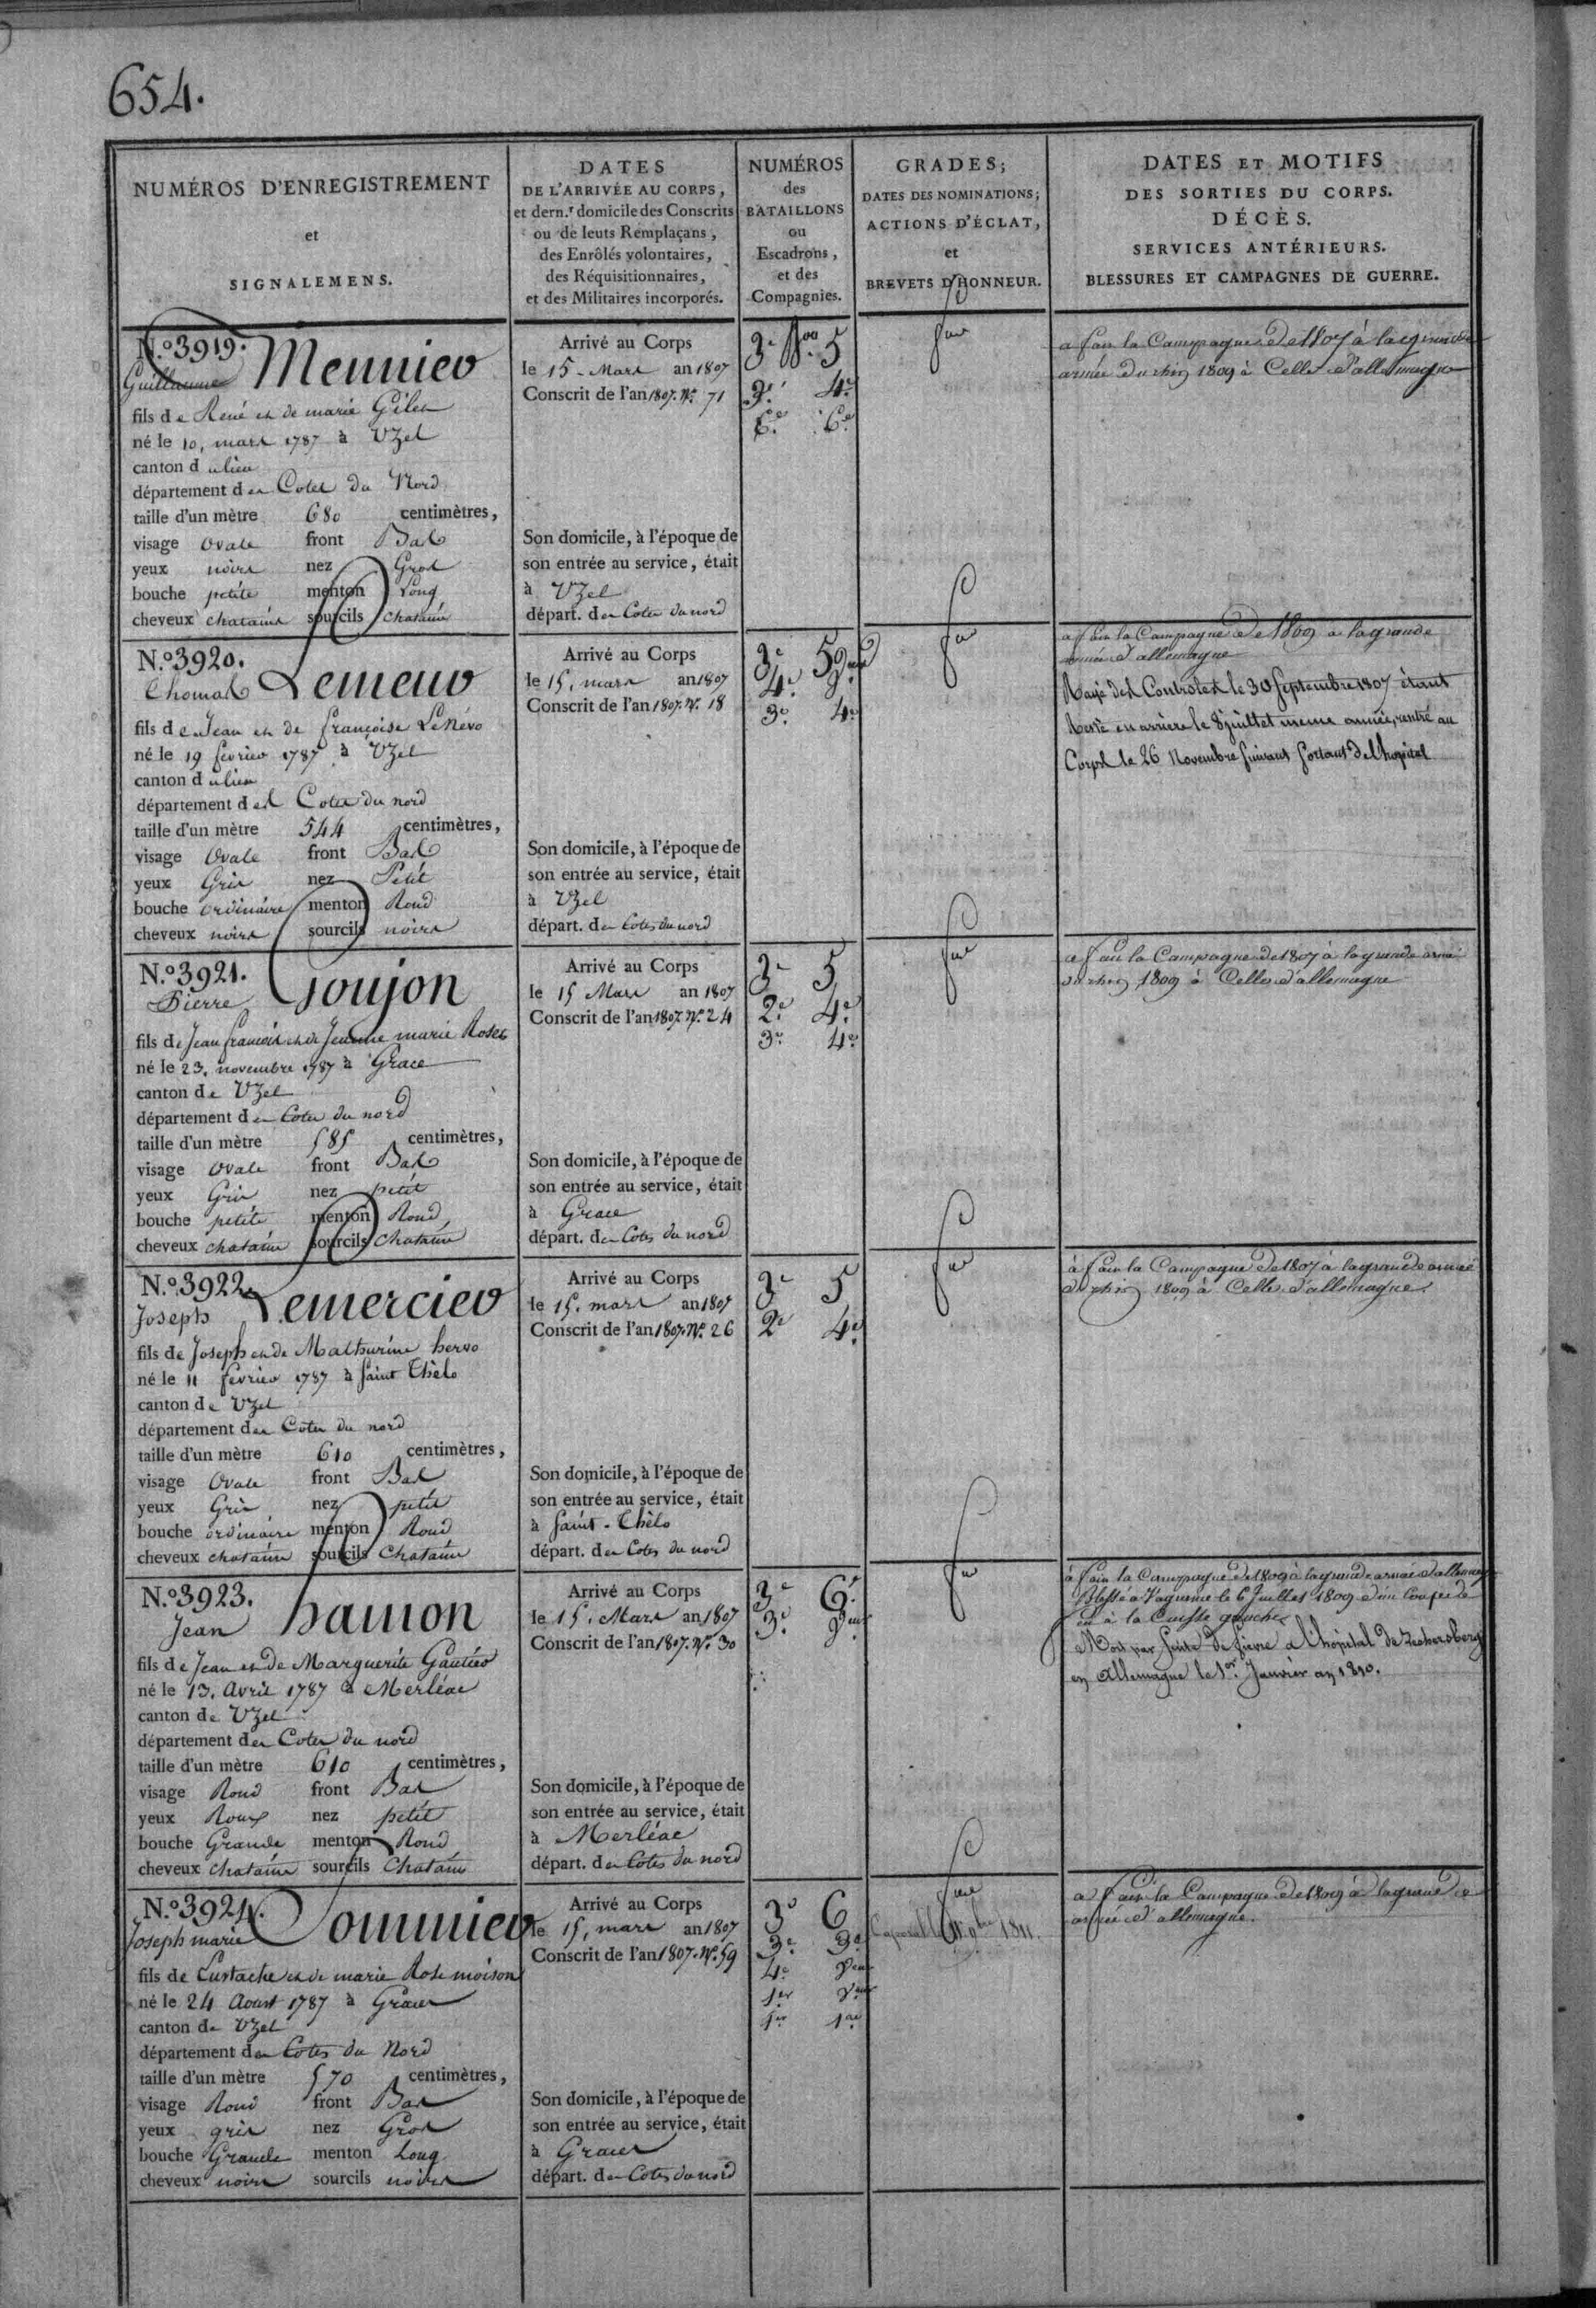 654.
NUMÉROS D'ENREGISTREMENT
et
SIGNALEMENS.
DATES
DE L'ARRIVÉE AU CORPS,
et dern.r domicile des Conscrits
ou de leurs Remplaçans,
des Enrôlés volontaires,
des Réquisitionnaires,
et des Militaires incorporés.
NUMÉROS
des
BATAILLONS
ou
Escadrons,
et des
Compagnies.
GRADES;
DATES DES NOMINATIONS;
ACTIONS D'ÉCLAT,
et
BREVETS D'HONNEUR.
DATES ET MOTIFS
DES SORTIES DU CORPS.
DÉCÈS.
SERVICES ANTÉRIEURS.
BLESSURES ET CAMPAGNES DE GUERRE.
N.o 3919. Meunier
Guillaume
fils de René et de marie Giles
né le 10, mars 1787 à Uzel
canton d u lieu
département des Cotes du Nord
taille d'un mètre 680 centimètres,
visage ovale front Bas
yeux noirs nez Gros
bouche petite menton Long
cheveux chatains sourcils chatains
Arrivé au Corps
le 15 Mars an 1807
Conscrit de l'an 1807. N.o 71
Son domicile, à l'époque de
son entrée au service, était
à Uzel
départ. des Cotes du nord
3e 5
3e 4e
6e 6e
fus
a fait la Campagne de 1807 à la grande
armée du rhin 1809 à Celle d'allemagne
N.o 3920. Lemeur
Thomas
fils de Jean et de françoise Le Névo
né le 19 fevrier 1787 à Uzel
canton d u lieu
département des Cotes du nord
taille d'un mètre 544 centimètres,
visage Ovale front Bas
yeux Gris nez Petit
bouche ordinaire menton Rond
cheveux noirs sourcils noirs
Arrivé au Corps
le 15, mars an 1807
Conscrit de l'an 1807. N.o 18
Son domicile, à l'époque de
son entrée au service, était
à Uzel
départ. des Cotes du nord
3e 5
4e
3e 4e
fus
a fait la Campagne de 1809 a la grande
armée d'allemagne
Rayé des Controles le 30 Septembre 1807 étant
Resté en arriere le 8 juillet meme année, rentré au
Corps le 26 Novembre suivant sortant de l'hopital
N.o 3921. Goujon
Pierre
fils de Jean françois et de Jeanne marie Roses
né le 23, novembre 1787 à Grace
canton de Uzel
département des Cotes du nord
taille d'un mètre 585 centimètres,
visage ovale front Bas
yeux Gris nez petit
bouche petite menton Rond
cheveux chatains sourcils chatains
Arrivé au Corps
le 15 Mars an 1807
Conscrit de l'an 1807 N.o 24
Son domicile, à l'époque de
son entrée au service, était
à Grace
départ. des Cotes du nord
3e 5
2e 4e
3e 4e
fus
a fait la Campagne de 1807 à la grande armée
du rhin 1809 à Celle d'allemagne
N.o 3922. Lemercier
Joseph
fils de Joseph et de Mathurine hervo
né le 11 fevrier 1787 à Saint Thèlo
canton de Uzel
département des Cotes du nord
taille d'un mètre 610 centimètres,
visage Ovale front Bas
yeux Gris nez petit
bouche ordinaire menton Rond
cheveux chatains sourcils chatains
Arrivé au Corps
le 15, mars an 1807
Conscrit de l'an 1807. N.o 26
Son domicile, à l'époque de
son entrée au service, était
à Saint-Thèlo
départ. des Cotes du nord
3e 5
2e 4e
fus
à fait la Campagne de 1807 à la grande armée
du rhin 1809 à Celle d'allemagne
N.o 3923. hamon
Jean
fils de Jean et de Marguerite Gautier
né le 13, Avril 1787 à Merléac
canton de Uzel
département des Cotes du nord
taille d'un mètre 610 centimètres,
visage Rond front Bas
yeux Roux nez petit
bouche Grande menton Rond
cheveux chatains sourcils Chatains
Arrivé au Corps
le 15, Mars an 1807
Conscrit de l'an 1807. N.o 30
Son domicile, à l'époque de
son entrée au service, était
à Merléac
départ. des Cotes du nord
3e 6e
3e
fus
à fait la Campagne de 1809 à la grande armée d'allemagne
Blessé à Vagurme le 6 Juillet 1809 d'un Coup de
feu à la Cuisse gauche
Mort par suite de fievre a l'hopital de
en Allemagne le 1er Janvier an 1810.
N.o 3924. Sommier
Joseph marie
fils de Eustache et de marie Rose moison
né le 24 Aoust 1787 à Graces
canton de Uzel
département des Cotes du Nord
taille d'un mètre 570 centimètres,
visage Rond front Bas
yeux gris nez Gros
bouche Grande menton Long
cheveux noirs sourcils noirs
Arrivé au Corps
le 15, mars an 1807
Conscrit de l'an 1807. N.o 59
Son domicile, à l'époque de
son entrée au service, était
à Graces
départ. des Cotes du nord
3e 6
3e 3e
4e
1er
1er 1re
fus
1811.
a fait la Campagne de 1809 à la grande
armée d'allemagne.